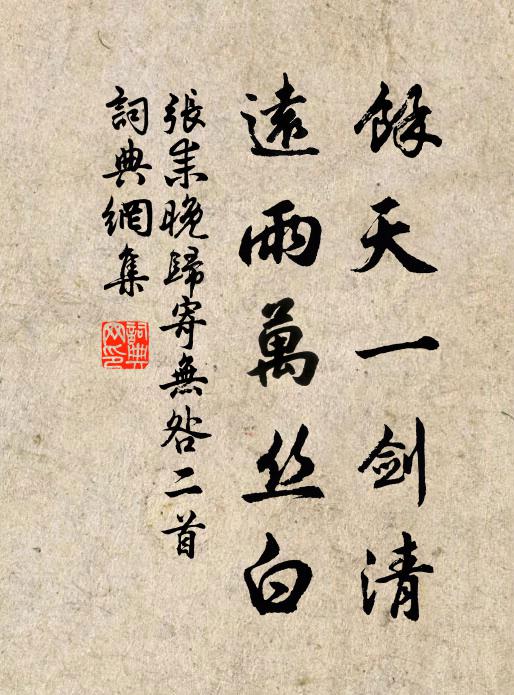 餘天一剑清
遠雨萬丝白
張耒晚歸寄無咎二首
詞典網集
詞典網印